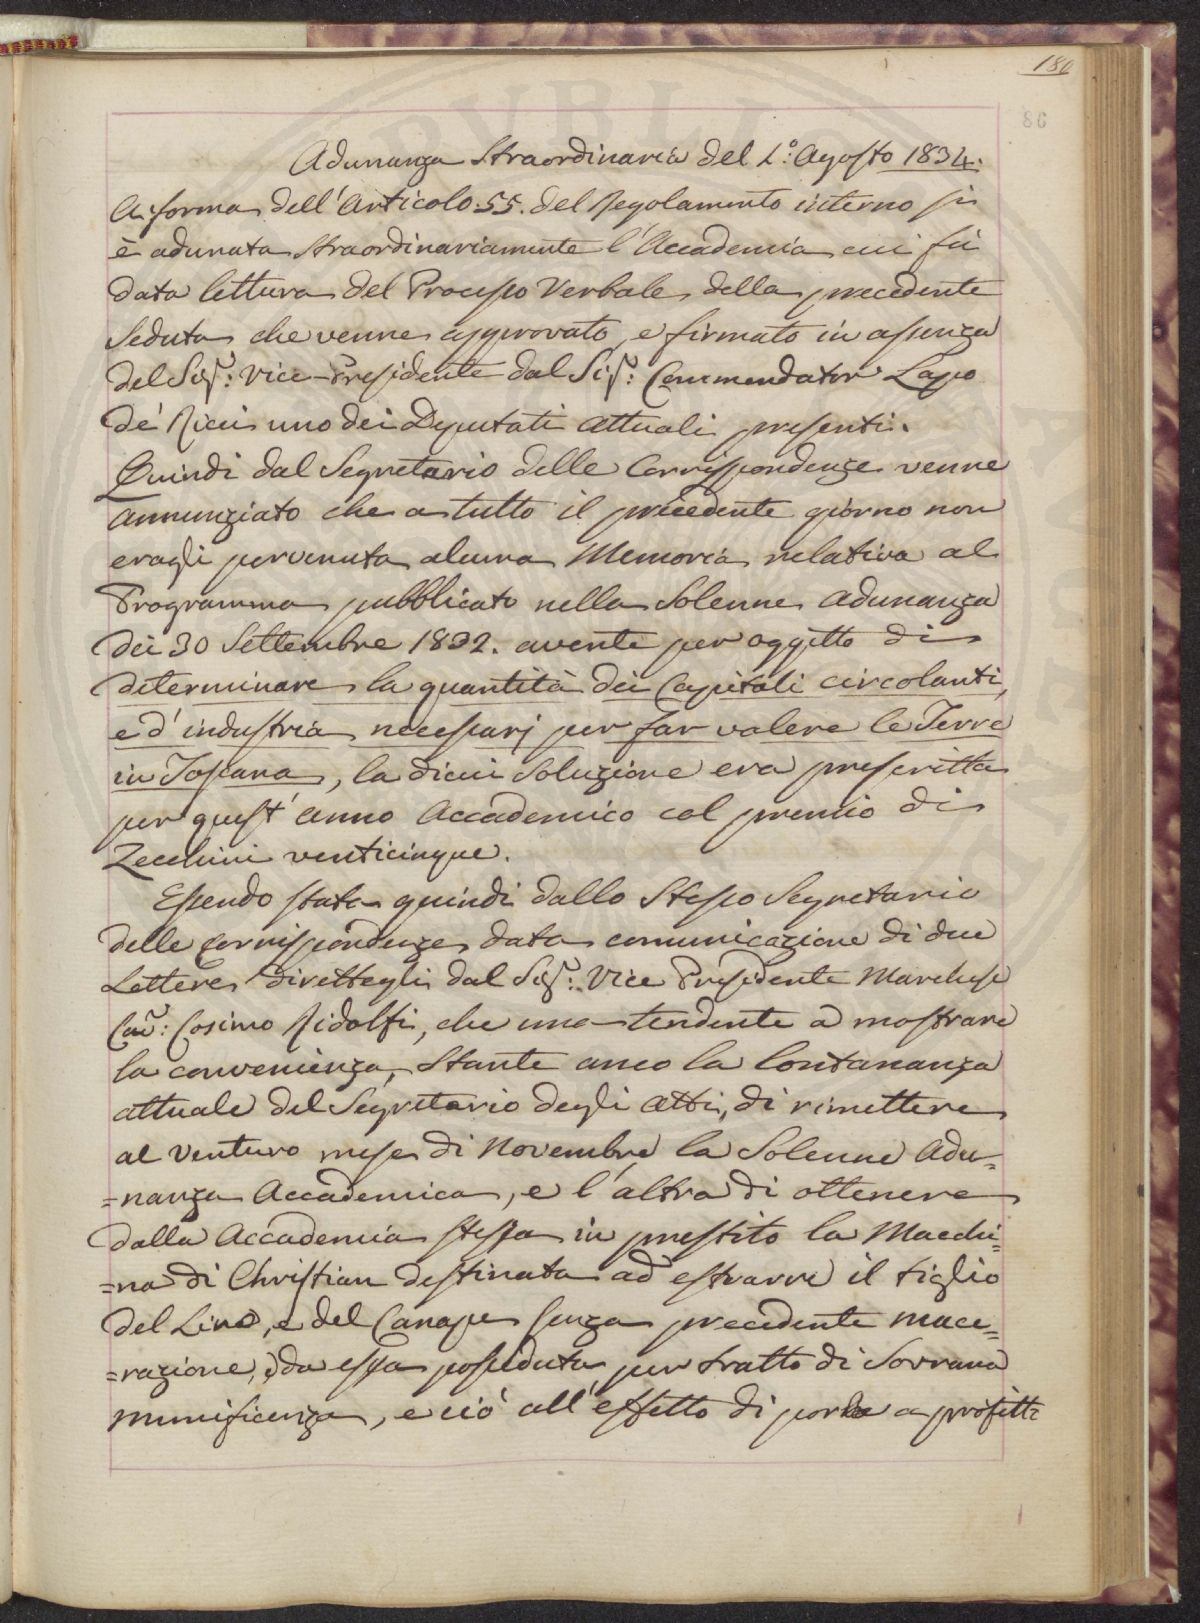 180
86
Adunanza Straordinaria del 1.º Agosto 1834.
A forma dell'Articolo 55. del Regolamento interno si
è adunata straordinariamente l'Accademia cui fù
data lettura del Processo Verbale della precedente
Seduta che venne approvato, e firmato in assenza
del Sig.r: Vice-Presidente dal Sig.r: Commendator Lapo
de' Ricci uno dei Deputati attuali presenti.
Quindi dal Segretario delle Corrispondenze venne
annunziato che a tutto il precedente giorno non
eragli pervenuta alcuna Memoria relativa al
Programma pubblicato nella Solenne adunanza
dei 30 Settembre 1832. avente per oggetto di
determinare la quantità dei Capitali circolanti,
e d'industria necessarj per far valere le Terre
in Toscana, la di cui Soluzione era prescritta
per quest'anno Accademico col premio di
Zecchini venticinque.
Essendo stata quindi dallo Stesso Segretario
delle Corrispondenze data comunicazione di due
Lettere direttegli dal Sig.r: Vice Presidente Marchese
Cav: Cosimo Ridolfi, che una tendente a mostrare
la convenienza, stante anco la lontananza
attuale del Segretario degli Atti, di rimettere
al venturo mese di Novembre la Solenne Adu=
=nanza Accademica, e l'altra di ottenere
dalla Accademia stessa in prestito la Macchi=
=na di Christian destinata ad estrarre il tiglio
del Lino, e del Canape senza precedente mace=
=razione, da essa posseduta per tratto di Sovrana
munificenza, e ciò all'effetto di porla a profitt=